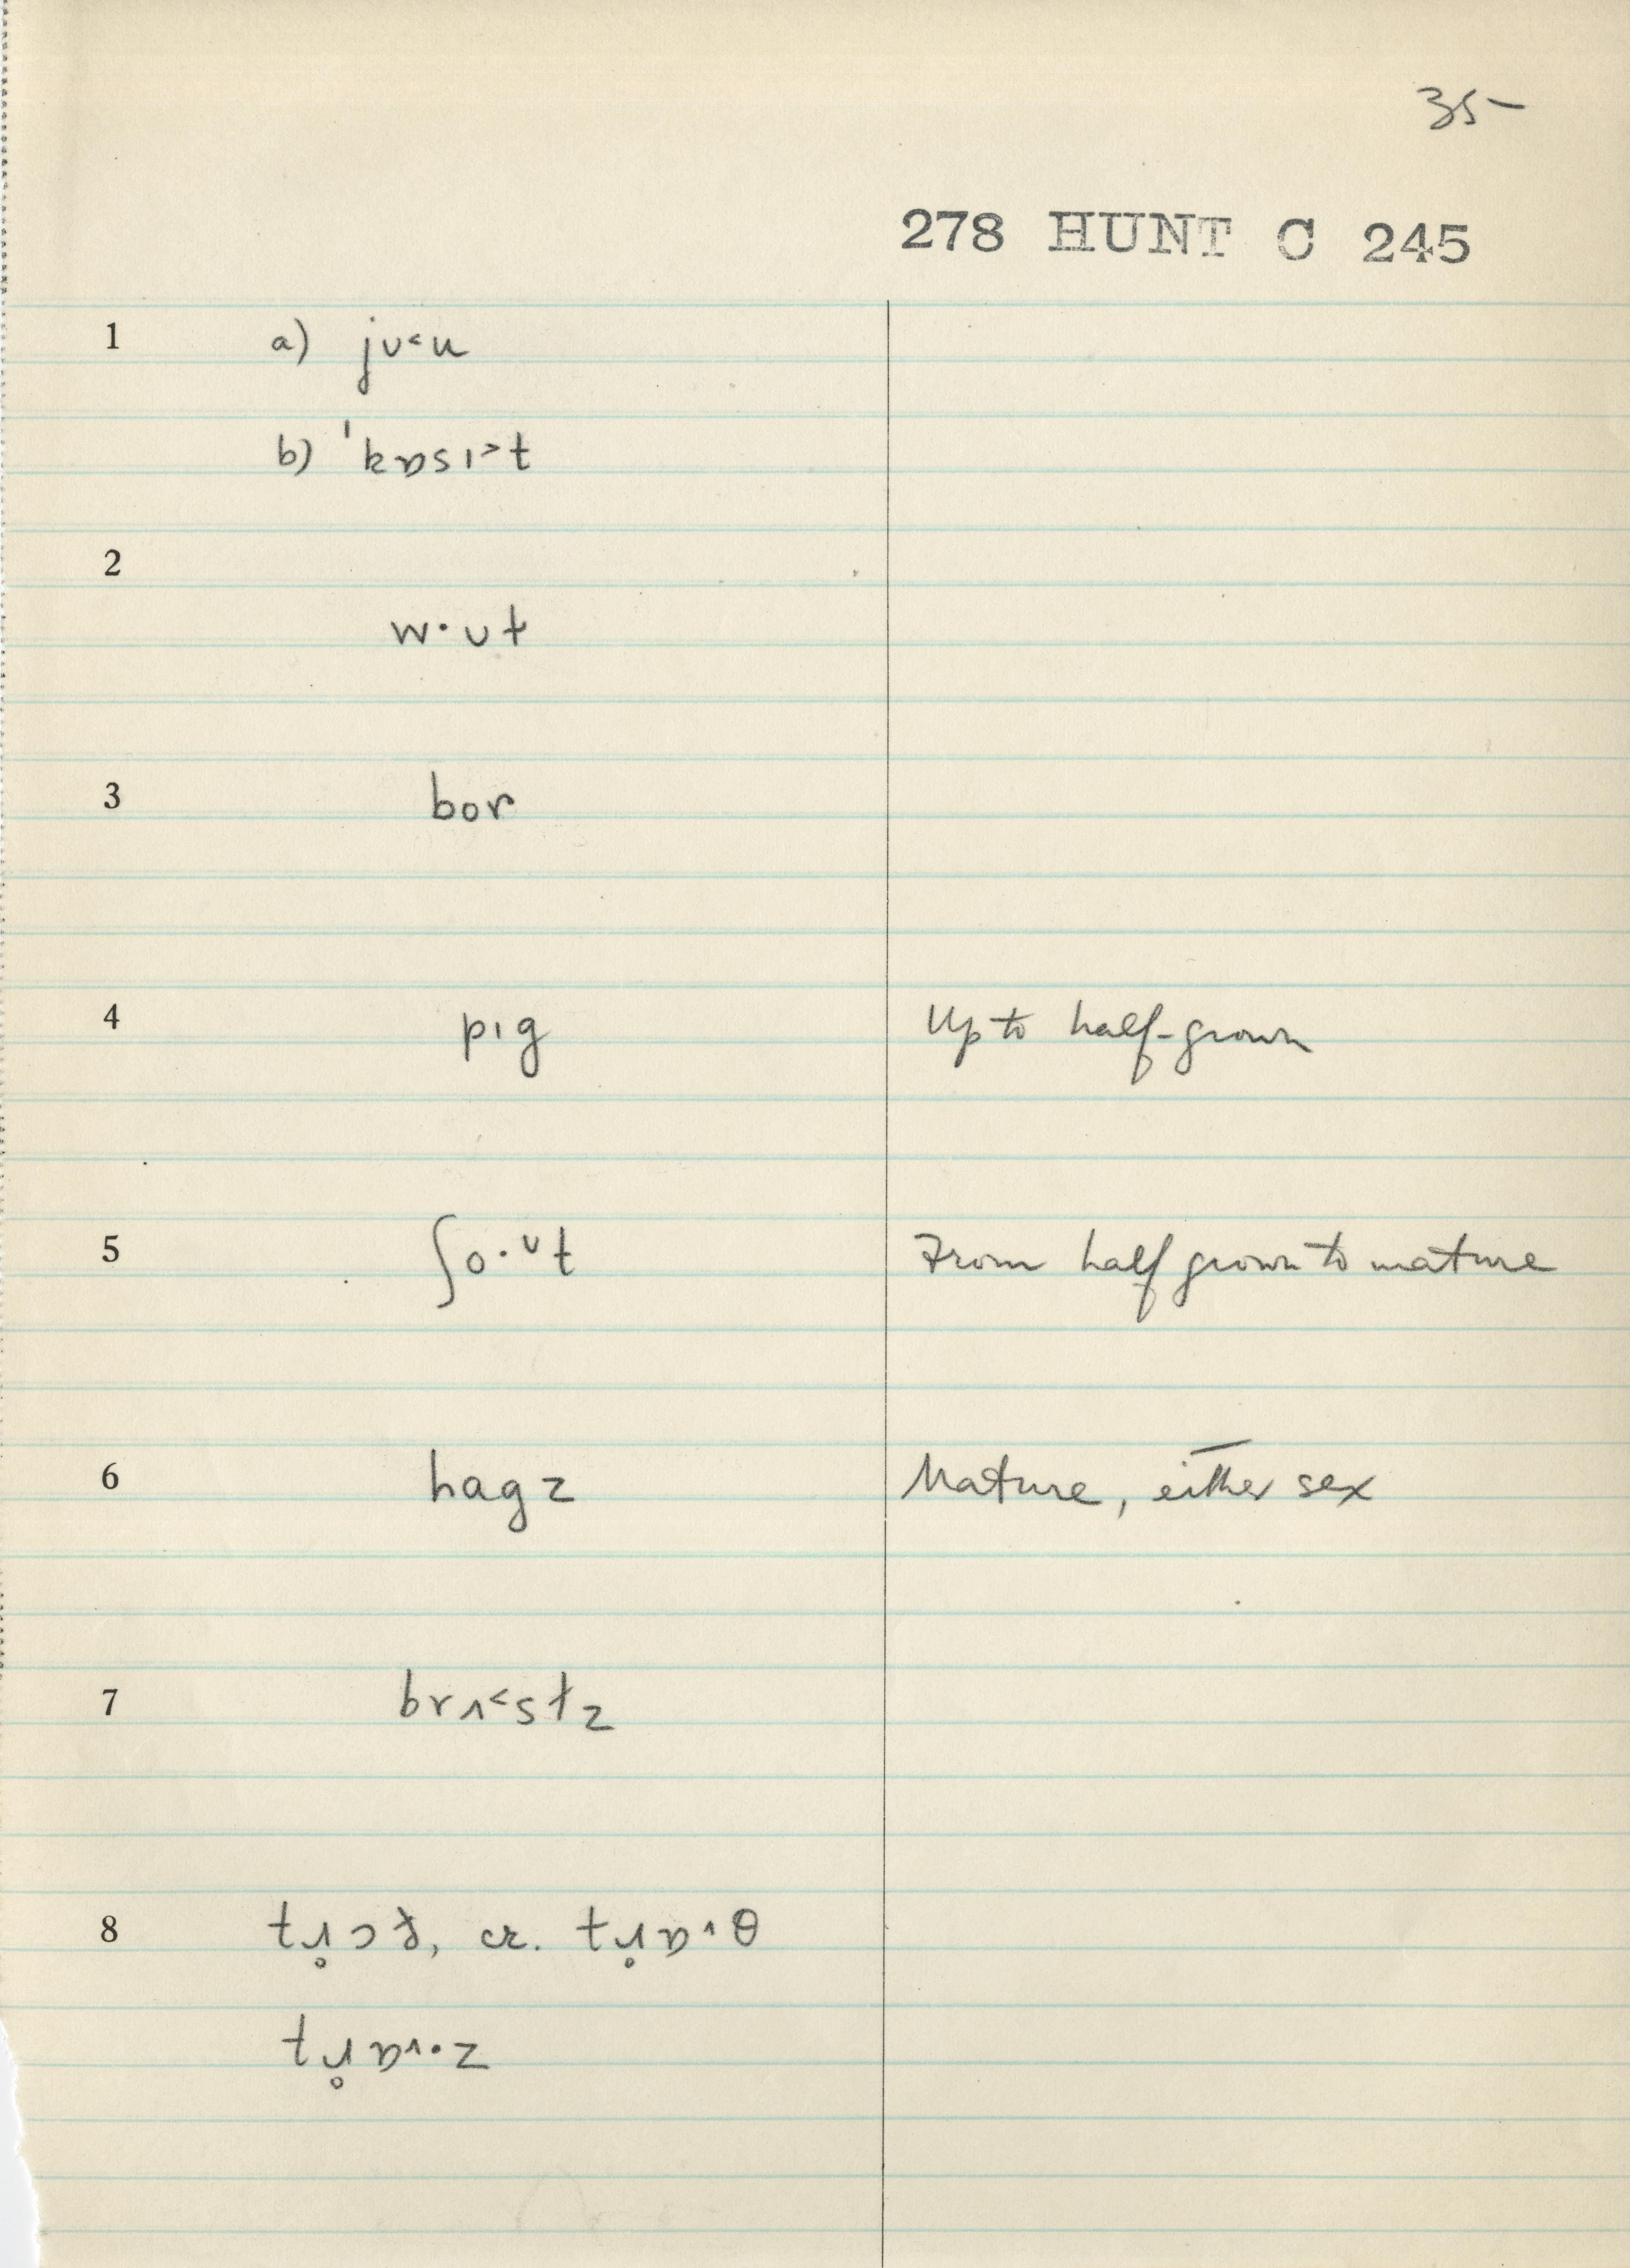 35-
278 HUNT C 245
1 a) jʊ˂u
b) ˈkɒsɪ˃t
2
w·ʊt
3 bor
4 pɪg Up to half-grown
5 ʃo·ᶷt From half grown to mature
6 hagz Mature, either sex
7 brʌ˂stz
8 or.